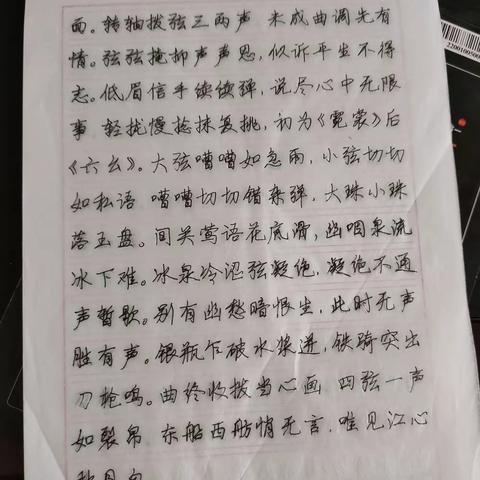 面。转轴拨弦三两声 未成曲调先有
情。弦弦掩抑声声思，似诉平生不得
志。低眉信手续续弹，说尽心中无限
事 轻拢慢捻抹复挑，初为《霓裳》后
《六幺》。大弦嘈嘈如急雨，小弦切切
如私语 嘈嘈切切错杂弹，大珠小珠
落玉盘。间关莺语花底滑，幽咽泉流
冰下难。冰泉冷涩弦凝绝，凝绝不通
声暂歇。别有幽愁暗恨生，此时无声
胜有声。银瓶乍破水浆迸，铁骑突出
刀枪鸣。曲终收拨当心画 四弦一声
如裂帛 东船西舫悄无言，唯见江心
秋月白
2200100500